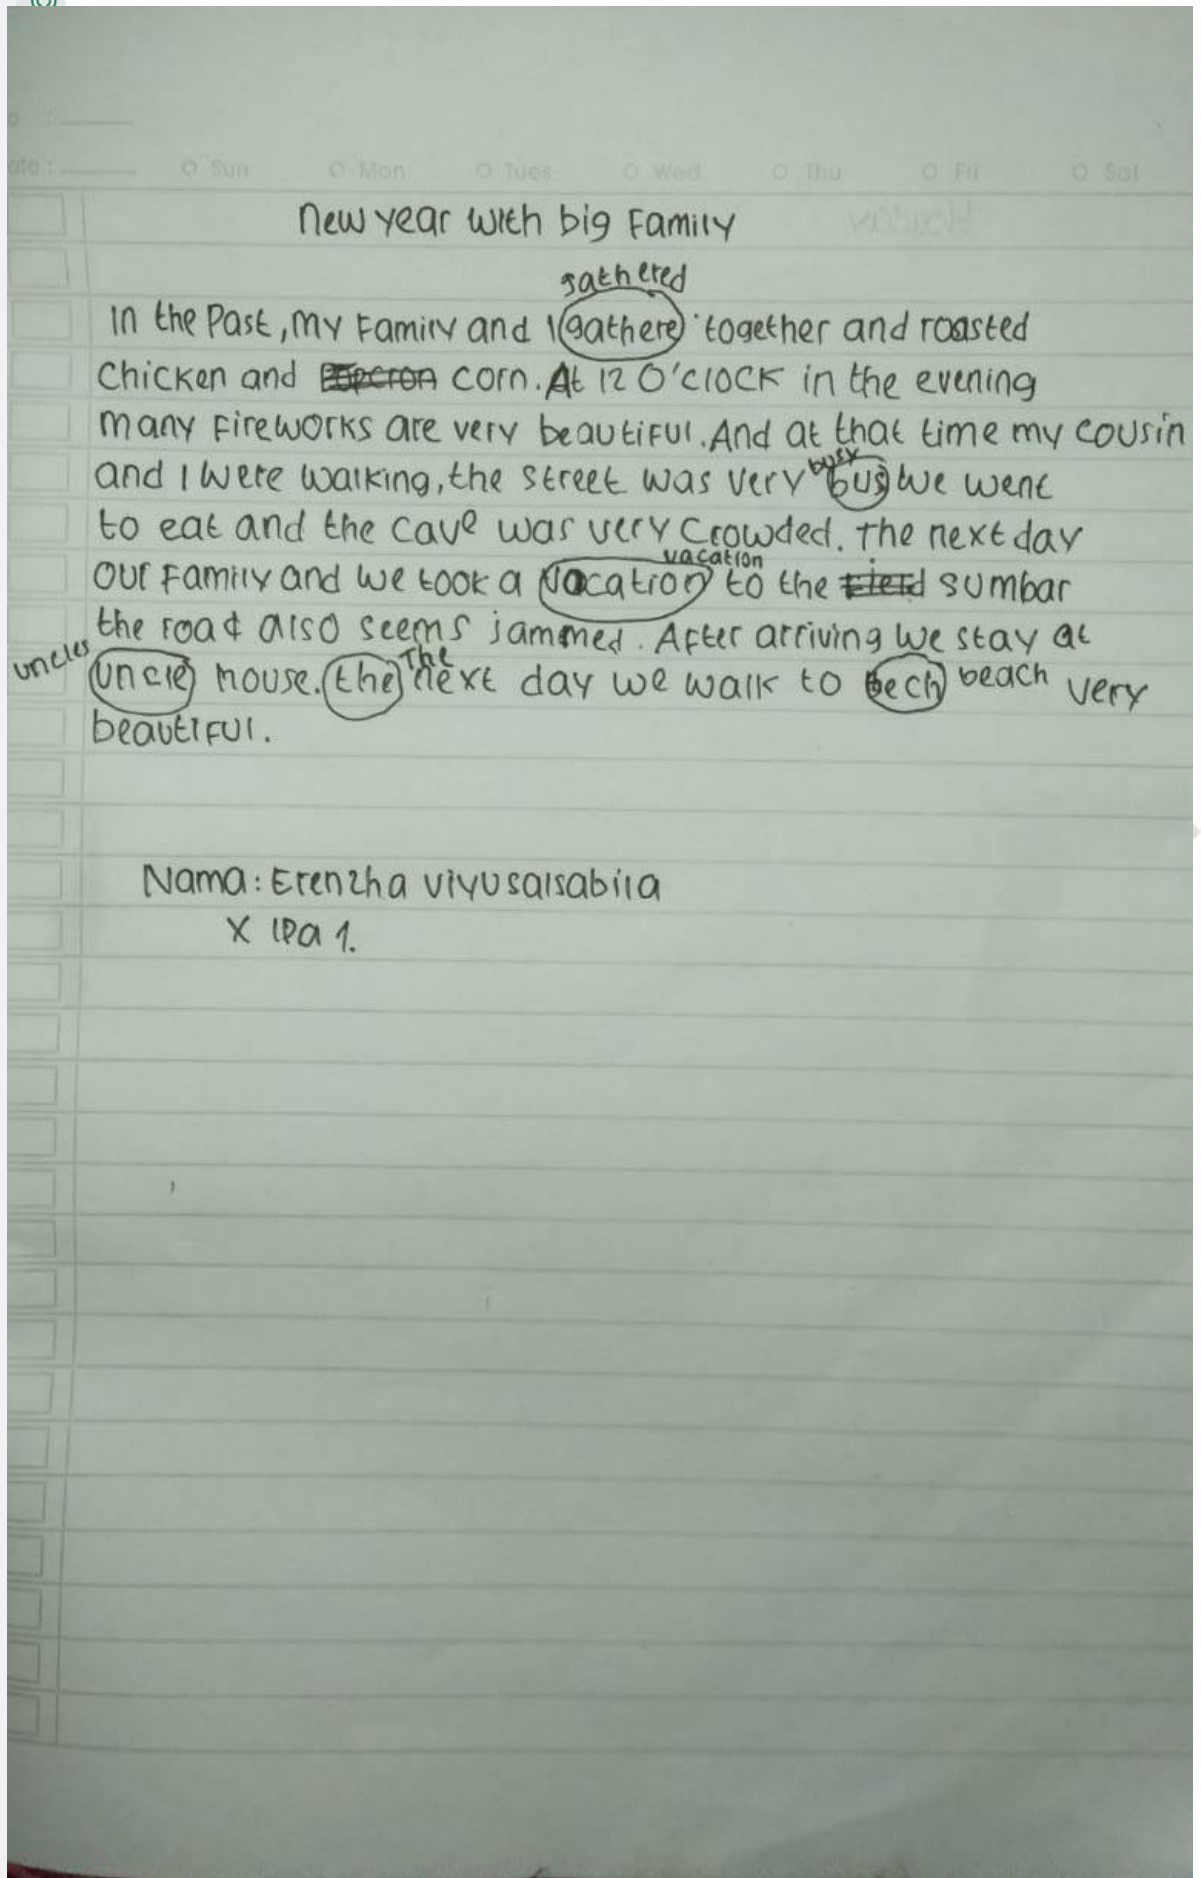 Date : Sun Mon Tues Wed Thu Fri Sat
New year with big Family
gathered
In the Past, my Family and I gathere together and roasted
Chicken and corn. At 12 O'clock in the evening
many Fireworks are very beautiful. And at that time my cousin
busy
and I were walking, the street was very bus we went
to eat and the cave was very Crowded. The next day
vacation
our Family and we took a vacation to the sumbar
the road also seems jammed. After arriving we stay at
uncles The
uncle house. the next day we walk to bech beach very
beautiful.
Nama: Erenzha viyusalsabila
X IPa 1.